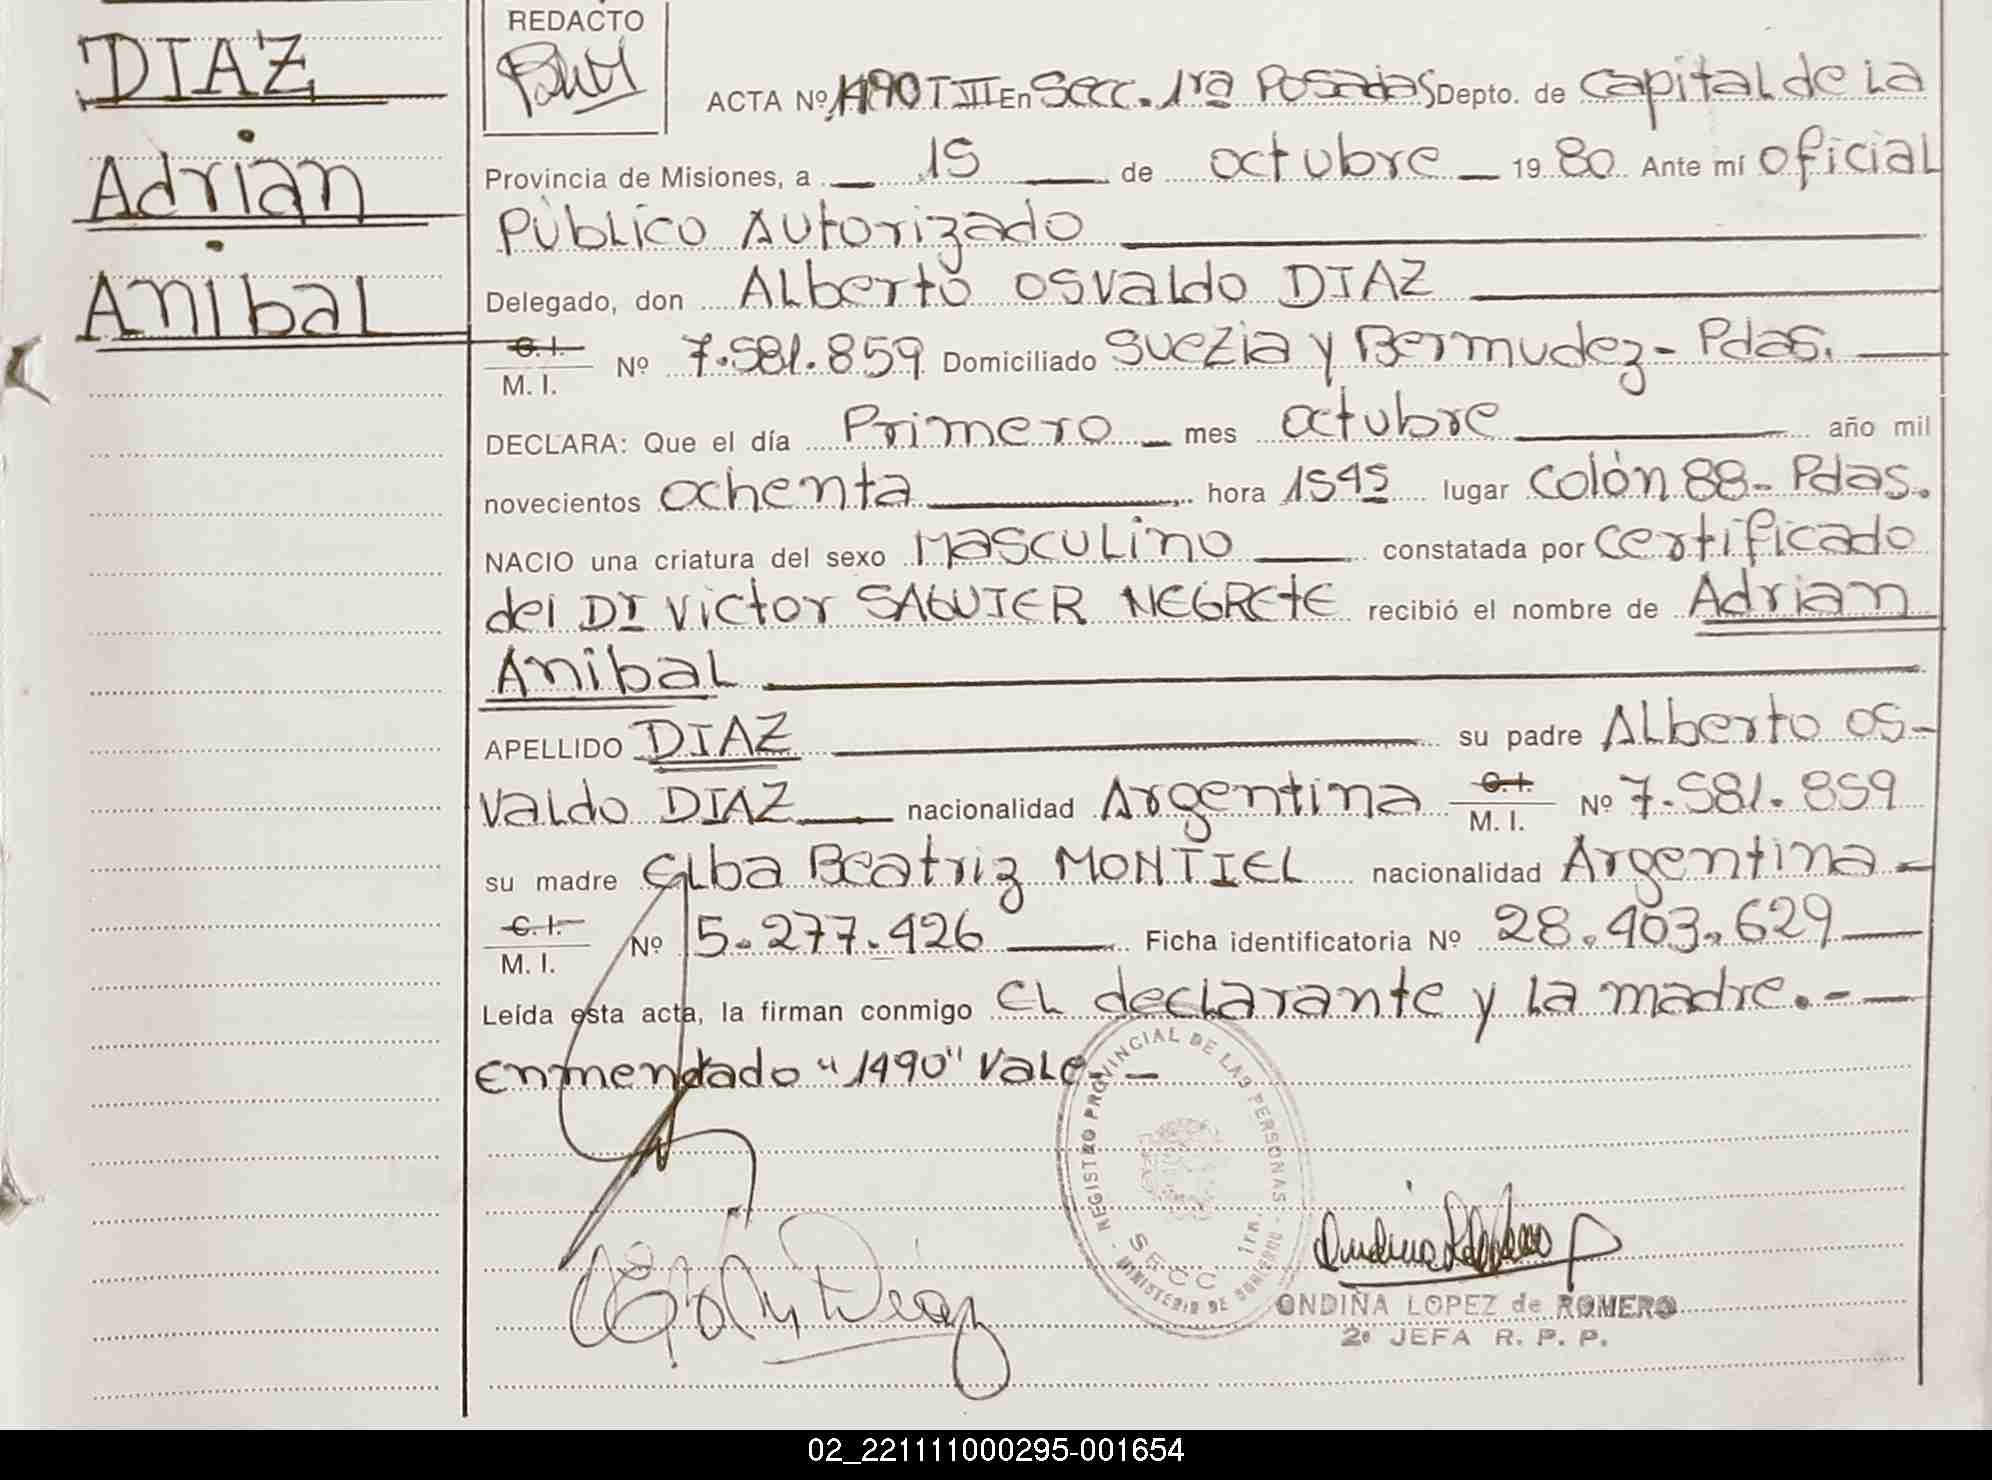 DIAZ
Adrian
Anibal
REDACTO
ACTA Nº 1490 T III En Secc. 1ra Posadas Depto. de Capital de la
Provincia de Misiones, a 15 de octubre 1980 Ante mí oficial
Público Autorizado
Delegado, don Alberto Osvaldo DIAZ
C. I.
M. I. Nº 7.581.859 Domiciliado Suezia y Bermudez - Pdas.
DECLARA: Que el día Primero mes octubre año mil
novecientos ochenta hora 1545 lugar Colón 88 - Pdas.
NACIO una criatura del sexo Masculino constatada por certificado
del Dr Victor SAGUIER NEGRETE recibió el nombre de Adrian
Anibal
APELLIDO DIAZ su padre Alberto Os-
valdo DIAZ nacionalidad Argentina C. I. M. I. Nº 7.581.859
su madre Elba Beatriz MONTIEL nacionalidad Argentina
C. I.
M. I. Nº 5.277.426 Ficha identificatoria Nº 28.403.629
Leída esta acta, la firman conmigo el declarante y la madre.-
Enmendado "1490" Vale.-
REGISTRO PROVINCIAL DE LAS PERSONAS
MINISTERIO DE GOBIERNO
SECC 1ra.
Diaz
ONDINA LOPEZ de ROMERO
2º JEFA R. P. P.
02_221111000295-001654